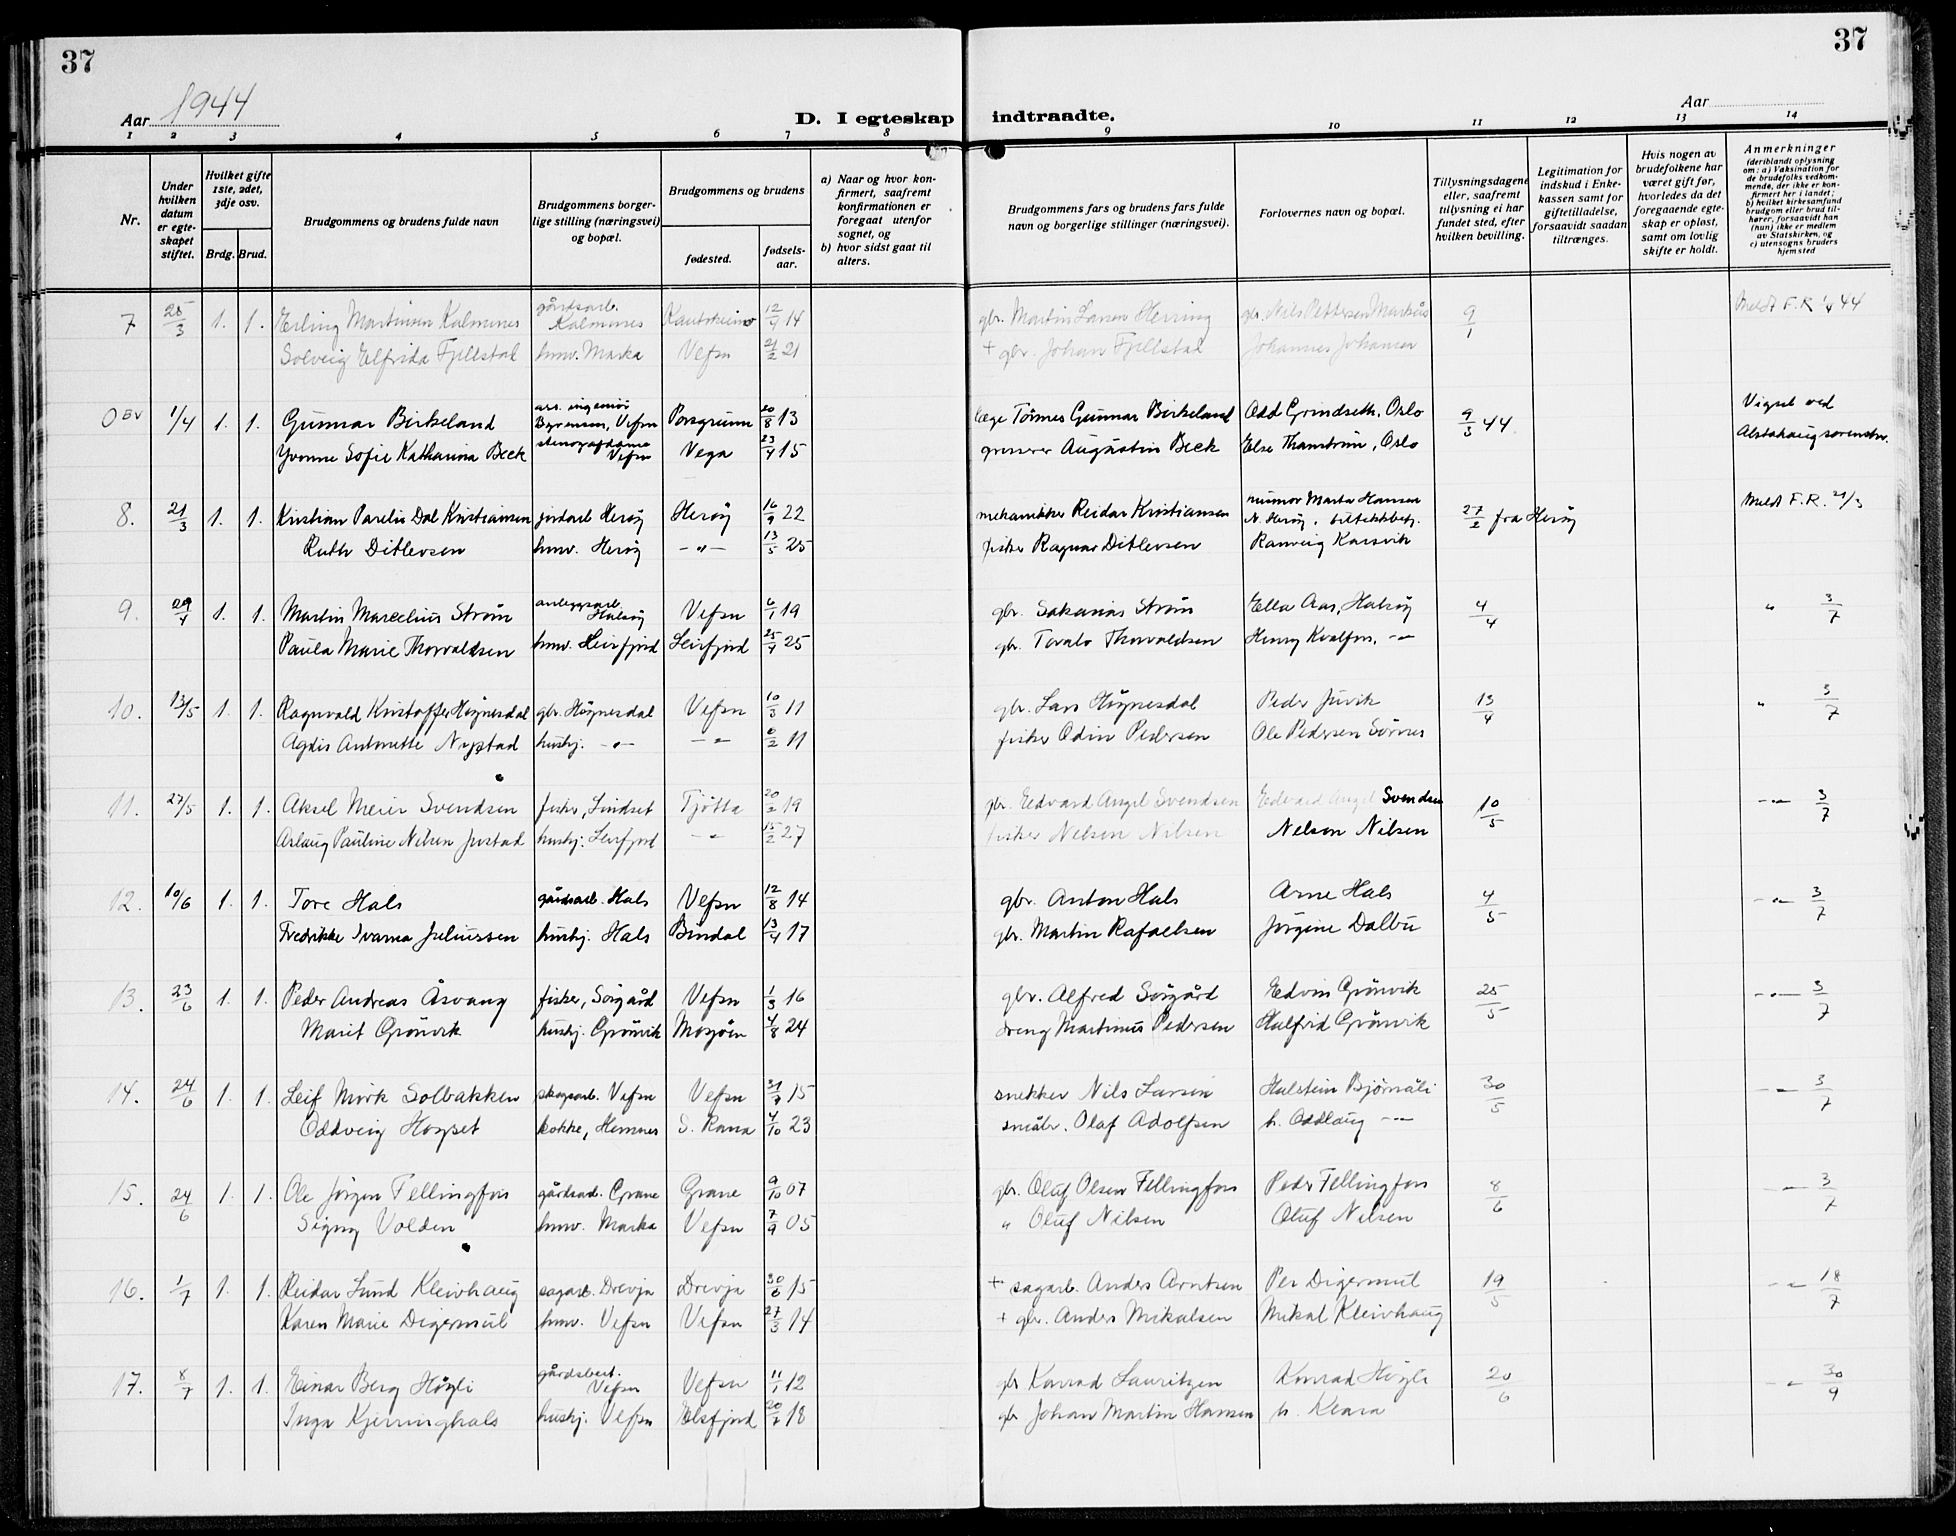 37
37
Aar 1944
D. I egteskap indtraadte.
Aar
1 2 3 4 5 6 7 8 9 10 11 12 13 14
Nr.
Under hvilken datum er egteskapet stiftet.
Hvilket gifte 1ste, 2det, 3dje osv.
Brdg. Brud.
Brudgommens og brudens fulde navn
Brudgommens borgerlige stilling (næringsvei) og bopæl.
Brudgommens og brudens
fødested.
fødselsaar.
a) Naar og hvor konfirmert, saafremt konfirmationen er foregaat utenfor sognet, og
b) hvor sidst gaat til alters.
Brudgommens fars og brudens fars fulde navn og borgerlige stillinger (næringsvei).
Forlovernes navn og bopæl.
Tillysningsdagene eller, saafremt tillysning ei har fundet sted, efter hvilken bevilling.
Legitimation for indskud i Enkekassen samt for giftetilladelse, forsaavidt saadan tiltrænges.
Hvis nogen av brudefolkene har været gift før, hvorledes da det foregaaende egteskap er opløst, samt om lovlig skifte er holdt.
Anmerkninger (deriblandt oplysning om: a) Vaksination for de brudefolks vedkommende, der ikke er konfirmert her i landet; b) hvilket kirkesamfund brudgom eller brud tilhører, forsaavidt han (hun) ikke er medlem av Statskirken, og c) utensogns bruders hjemsted
7 25/3 1. 1. Erling Martinsen Kalmnes gårdsarb. Kalmnes Kautokeino 12/4 14 gbr. Martin Larsen Herring gbr. Nils Pettersen Markås 9/1 Meldt F.R. 1/4 44
Solveig Elfrida Fjellstal hmv. Marka Vefsn 21/2 21 + gbr. Johan Fjellstal Johannes Johansen
0BV 1/4 1. 1. Gunnar Birkeland ass. ingeniör Vefsn Porsgrunn 20/8 13 læge Tönnes Gunnar Birkeland Odd Grindseth, Oslo 9/3 44 Vigsel ved
Yvonne Sofie Katharina Beck Vefsn Vega 23/4 15 grosserer Augustin Beck Else Thanstrøm, Oslo Alstahaug sorenskr.
8. 21/3 1. 1. Kristian Parelius Dal Kristiansen jordarb Herøy Herøy 16/9 22 mekanikker Reidar Kristiansen Marta Hansen N. Herøy, 27/2 fra Herøy Meldt F.R. 21/3
Ruth Ditlevsen hmv. Herøy -"- 13/5 25 fisker Ragnar Ditlevsen Ranveig Karsvik
9. 29/4 1. 1. Martin Marcelius Strøm anleggsarb. Halsøy Vefsn 6/1 19 gbr. Sakarias Strøm Ella Aas, Halsøy 4/4 " 3/7
Paula Marie Thorvaldsen hmv. Leirfjord Leirfjord 25/4 25 gbr. Torvald Thorvaldsen Henry Kvalfors, -"-
10. 13/5 1. 1. Ragnvald Kristoffer Högnesdal gbr. Högnesdal Vefsn 10/3 11 gbr. Lars Högnesdal Peder Juvik 13/4 " 3/7
Agdis Antonette Nystad hushj. -"- -"- 6/2 11 fisker Odin Pedersen Ole Pedersen Sörnes
11. 27/5 1. 1. Aksel Meier Svendsen fisker, Lindset Tjötta 20/2 19 gbr. Edvard Angel Svendsen Edvard Angel Svendsen 10/5 -"- 3/7
Aslaug Pauline Nilsen Justad hushj. Leirfjord -"- 15/2 27 fisker Nelson Nilsen Nelson Nilsen
12. 10/6 1. 1. Tore Hals gårdsarb. Hals Vefsn 12/8 14 gbr. Anton Hals Arne Hals 4/5 -"- 3/7
Fredrikke Ivarna Juliussen hushj. Hals Bindal 13/4 17 gbr. Martin Rafaelsen Jörgine Dalbu
13. 23/6 1. 1. Peder Andreas Åsvang fisker, Sörgård Vefsn 1/3 16 gbr. Alfred Sörgård Edvin Grönvik 25/5 -"- 3/7
Marit Grönvik hushj. Grönvik Mosjöen 4/8 24 dreng Martinus Pedersen Halfrid Grönvik
14. 24/6 1. 1. Leif Mörk Solbakken skogsarb. Vefsn Vefsn 31/7 15 snekker Nils Larsen Halstein Björnåli 30/5 -"- 3/7
Oddveig Hogset kokke, Hemnes S. Rana 4/10 23 småbr. Olaf Adolfsen h. Oddlaug -"-
15. 24/6 1. 1. Ole Jörgen Fellingfors gårdsarb. Grane Grane 9/10 07 gbr. Oluf Olsen Fellingfors Peder Fellingfors 8/6 -"- 3/7
Signy Volden hmv. Marka Vefsn 7/9 05 " Oluf Nilsen Oluf Nilsen
16. 1/7 1. 1. Reidar Lund Kleivhaug sagarb. Drevja Drevja 30/6 15 + sagarb. Anders Arntsen Per Digermul 19/5 -"- 18/7
Karen Marie Digermul hmv. Vefsn Vefsn 27/3 14 + gbr. Anders Mikalsen Mikal Kleivhaug
17. 8/7 1. 1. Einar Berg Högli gårdsbest. Vefsn Vefsn 11/1 12 gbr Konrad Lauritzen Konrad Högli 20/6 -"- 30/9
Inga Kjerringhals hushj. Vefsn Elsfjord 20/7 18 gbr Johan Martin Hansen h. Klara